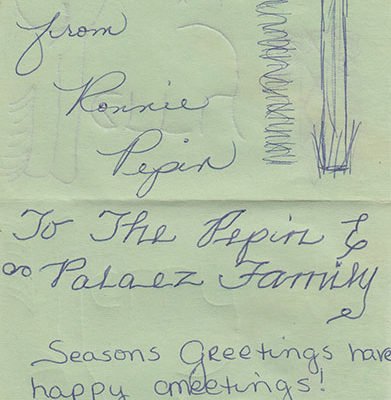 from
Ronnie
Pepin
To The Pepin &
Palaez Family
Seasons Greetings have
happy meetings!